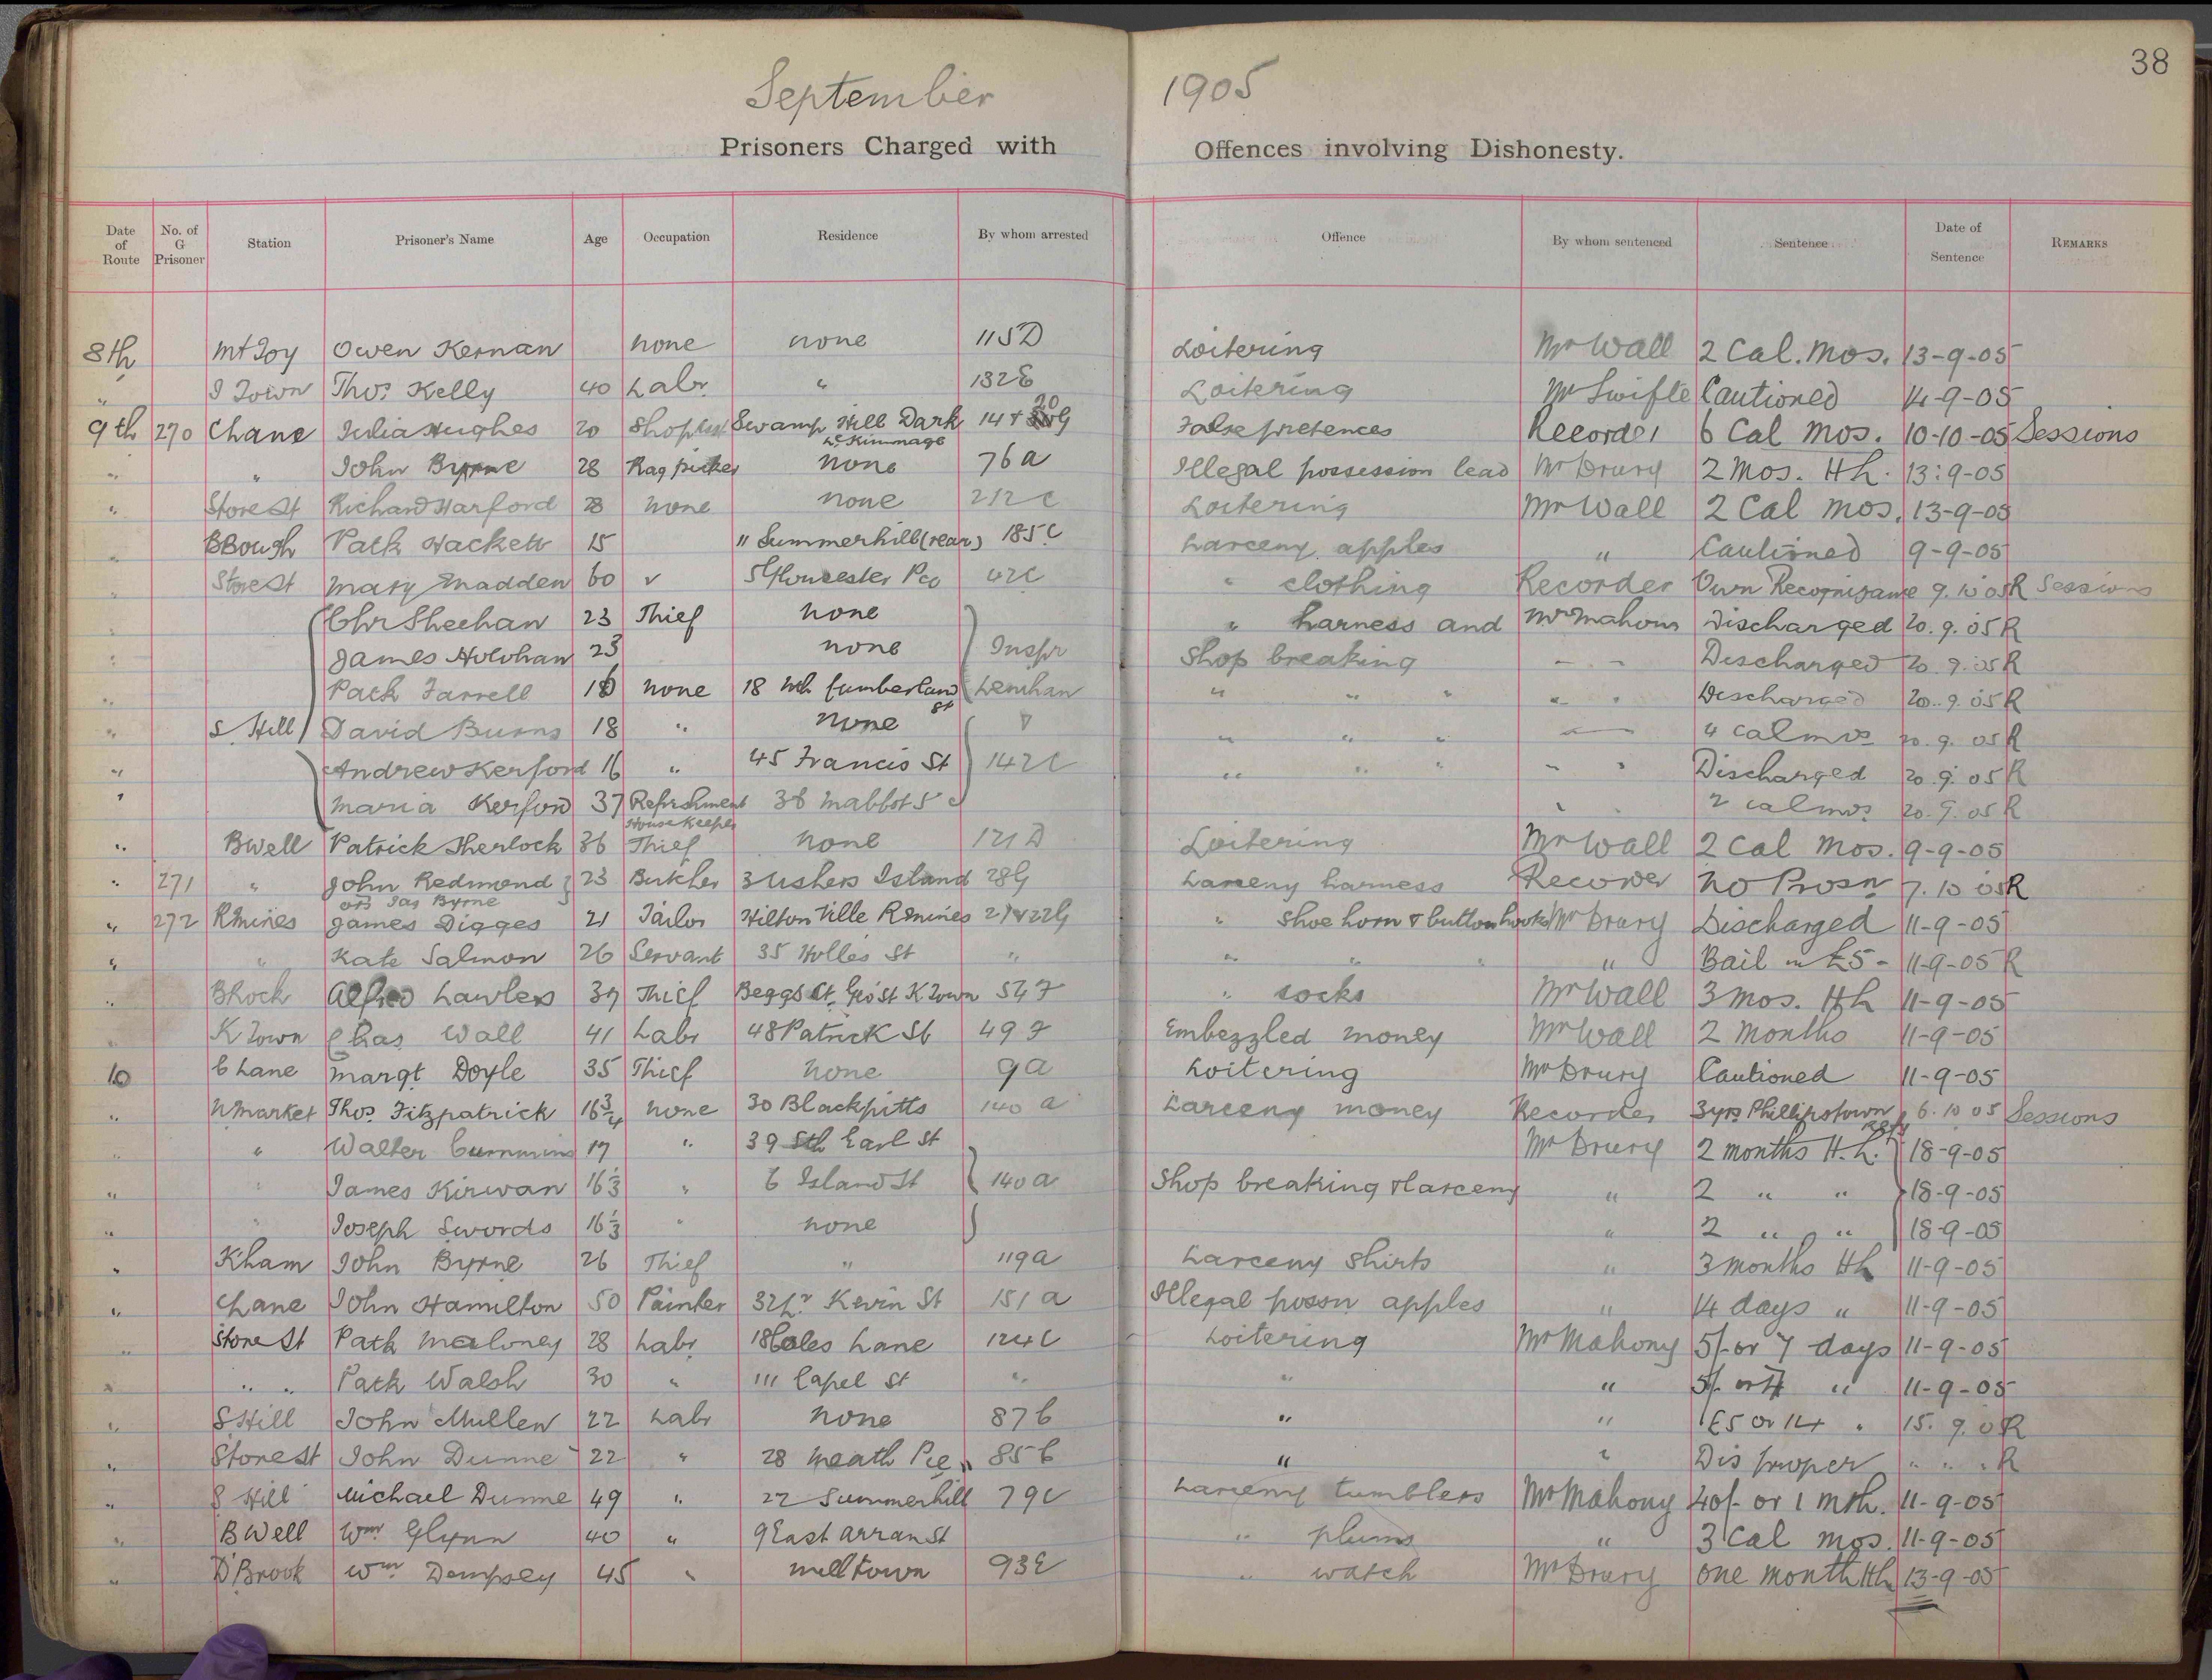 38
September 1905
Prisoners Charged with Offences involving Dishonesty.
Date of Route No. of G Prisoner Station Prisoner's Name Age Occupation Residence By whom arrested Offence By whom sentenced Sentence Date of Sentence Remarks
8th Mt Joy Owen Kernan none none 115D Loitering Mr Wall 2 Cal. Mos. 13-9-05
" I Town Thos Kelly 40 Labr " 132E Loitering Mr Swifte Cautioned 14-9-05
9th 270 Chane Julia Hughes 20 Swamp Hill Dark 14 + 20 G False pretences Recorder 6 Cal Mos. 10-10-05 Sessions
Kimmage
" " John Byrne 28 Rag picker none 76a Illegal possession lead Mr Drury 2 Mos. H L. 13:9-05
" Store St Richard Harford 28 none none 212C Loitering Mr Wall 2 Cal Mos. 13-9-05
" BBough Patk Hackett 15 11 Summerhill (rear) 185C Larceny apples " Cautioned 9-9-05
" Store St Mary Madden 60 v 5 Gloucester Pce 42C " clothing Recorder Own Recognisance 9.10 05 R Sessions
" Chr Sheehan 23 Thief none " harness and Mr Mahony Discharged 20.9.05 R
" James Holohan 23 none Inspr Shop breaking " " Discharged 20.9.05 R
" Patk Farrell 18 none 18 Nth Cumberland St Lenihan " " " " " Discharged 20.9.05 R
" S. Hill David Burns 18 " none & " " " " 4 cal mos 20.9.05 R
" Andrew Kerford 16 " 45 Francis St 142C " " " " " Discharged 20.9.05 R
" Maria Kerford 37 Refrshment 36 Mabbot St " " 2 cal mos 20.9.05 R
House Keeper
" BWell Patrick Sherlock 36 Thief none 121D Loitering Mr Wall 2 Cal Mos. 9-9-05
" 271 " John Redmond 23 Butcher 3 Ushers Island 28G Larceny harness Recorder No Prosn 7.10 05 R
ors Jas Byrne
" 272 RMines James Digges 21 Tailor Hilton Ville RMines 21 & 22G " Shoe horn & button hooks Mr Drury Discharged 11-9-05
" " Kate Salmon 26 Servant 35 Holles St " " " " " Bail in £5 - 11-9-05 R
" BRock Alfred Lawless 39 Thief Beggs Ct. Geo St K Town 54F " socks Mr Wall 3 mos. H L 11-9-05
" K Town Chas Wall 41 Labr 48 Patrick St 49F Embezzled money Mr Wall 2 Months 11-9-05
10 C Lane Margt Doyle 35 Thief none 9a Loitering Mr Drury Cautioned 11-9-05
" NMarket Thos. Fitzpatrick 16¾ none 30 Blackpitts 140 a Larceny money Recorder 3 yrs Phillipstown Refy 6.10 05 Sessions
" " Walter Cummins 17 " 39 Sth Earl St Mr Drury 2 months H. L. 18-9-05
" " James Kirwan 16⅓ " 6 Island St 140a Shop breaking & larceny " 2 " " 18-9-05
" " Joseph Swords 16⅓ " none " 2 " " 18-9-05
" K'ham John Byrne 26 Thief " 119a Larceny shirts " 3 months H L 11-9-05
" Chane John Hamilton 50 Painter 32 Kevin St 151a Illegal possn apples " 14 days " 11-9-05
" Store St Patk Maloney 28 Labr 18 Coles Lane 124C Loitering Mr Mahony 5/- or 7 days 11-9-05
" " " Patk Walsh 30 " 111 Capel St " " " 5/- or 7 " 11-9-05
" S.Hill John Mullen 22 Labr none 87C " " £5 or 14 " 15.9.05 R
" Store St John Dunne 22 " 28 Meath Pce 85C " " Dis proper " " " R
" S Hill Michael Dunne 49 " 22 Summerhill 79C Larceny tumblers Mr Mahony 40/- or 1 mth. 11-9-05
" B Well Wm Glynn 40 " 9 East Arran St " plums " 3 Cal mos. 11-9-05
" D'Brook Wm Dempsey 45 " Milltown 93E " watch Mr Drury one month H L 13-9-05